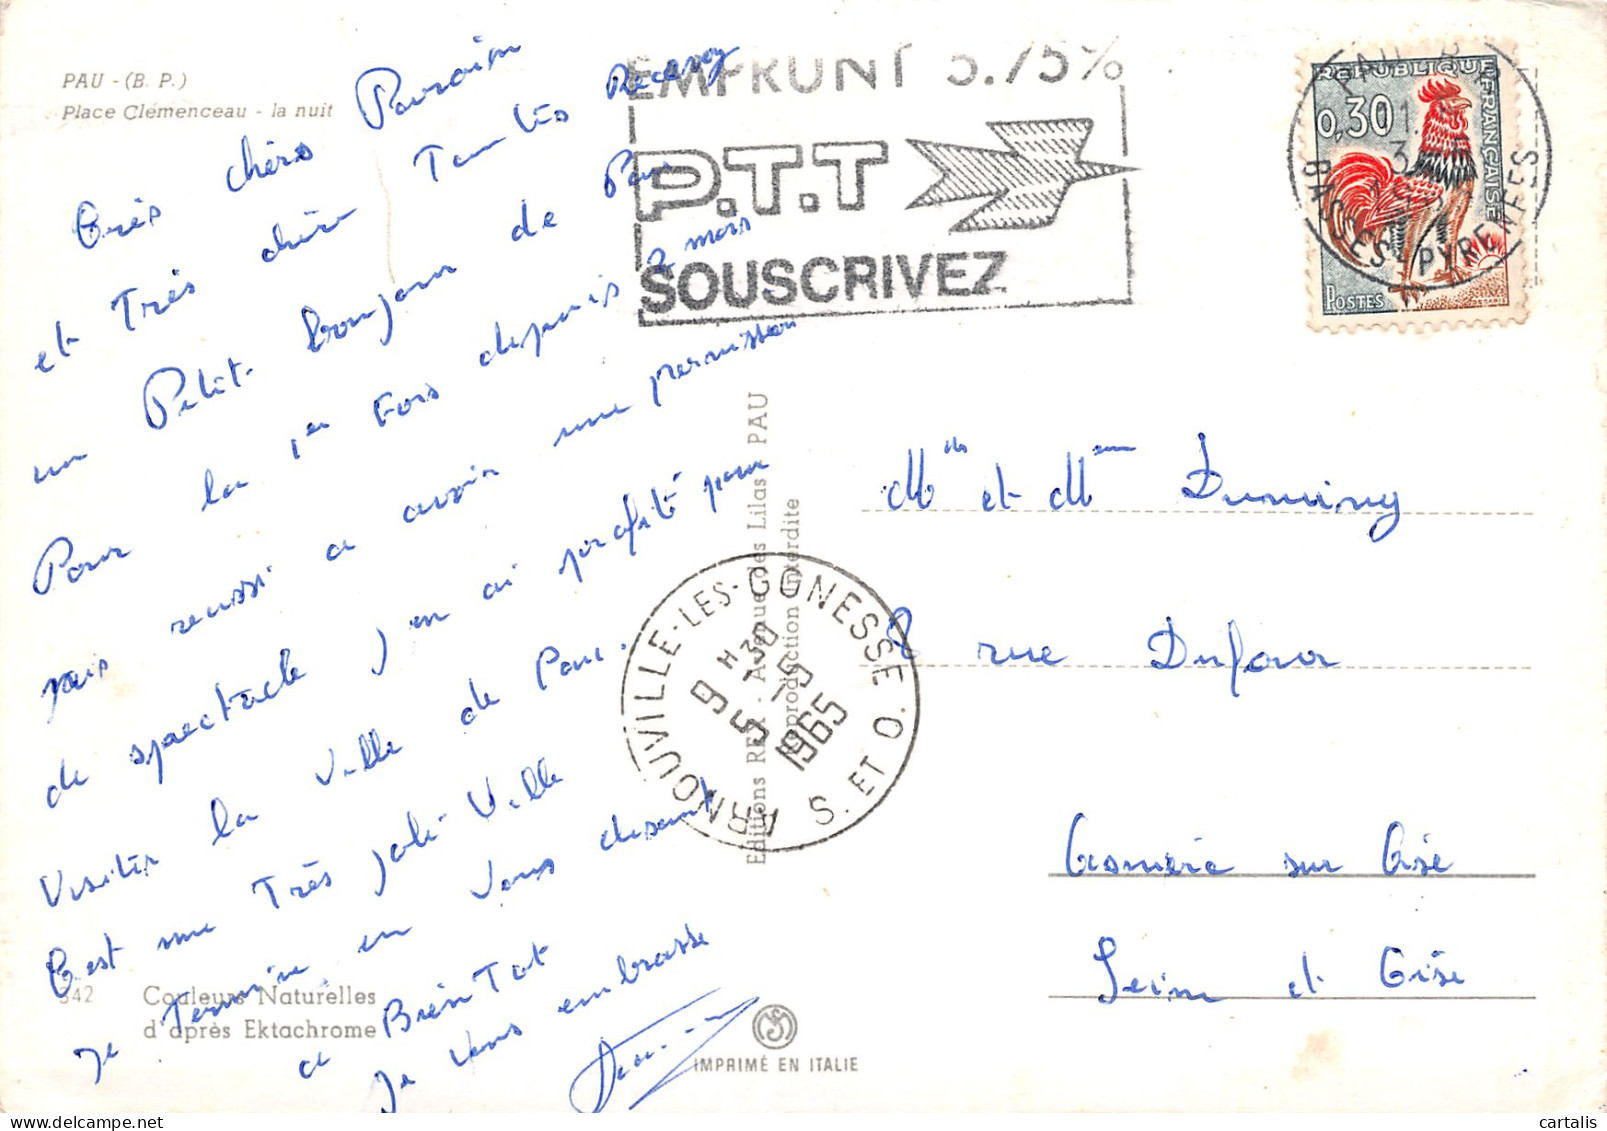 PAU - (B. P.)
Place Clémenceau - la nuit
Très chers Parrain
et Très chère Tantes
un Petit bonjour de Pau
Pour la 1er Fois depuis 2 mois
reussi a avoir une permission
de spectacle j'en ai profité pour
Visiter la Ville de Pau.
C'est une Très joli Ville
Je Termine en Vous disant
a Bientot
Je Vous embrasse
342 Couleurs Naturelles
d'après Ektachrome
EMPRUNT 5.75%
P.T.T
SOUSCRIVEZ
REPUBLIQUE FRANÇAISE
0,30
POSTES
BASSES-PYRENEES
Editions REX - Avenue des Lilas PAU
Reproduction Interdite
ARNOUVILLE-LES-GONESSE
S. ET O.
9 H 30
5 - 5
1965
IMPRIMÉ EN ITALIE
et Mme Duminy
8 rue Dufour
sur Oise
Seine et Oise
cartalis